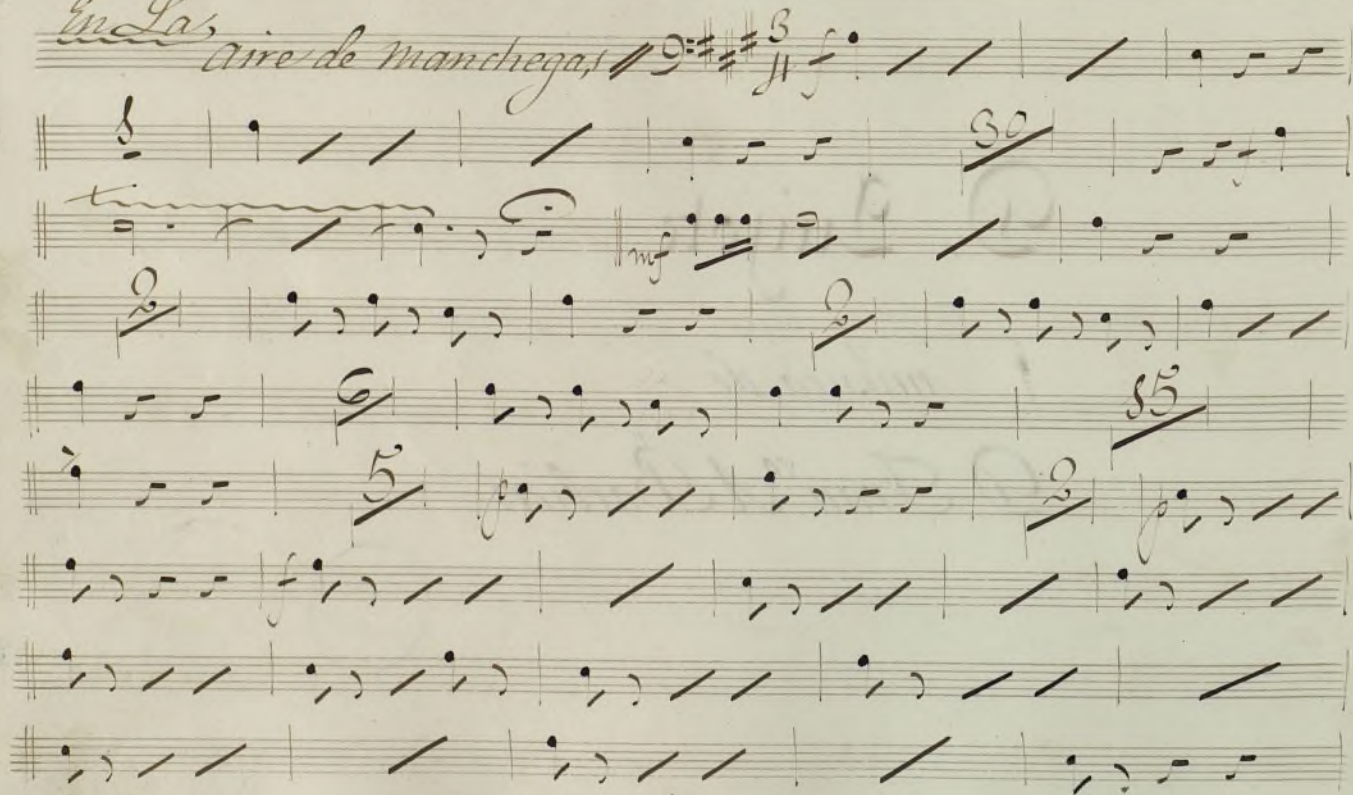 En La,
Aire de Manchegas 3 4 f
1 30 f
mf
2 2
6 15
5 p 2 p
f